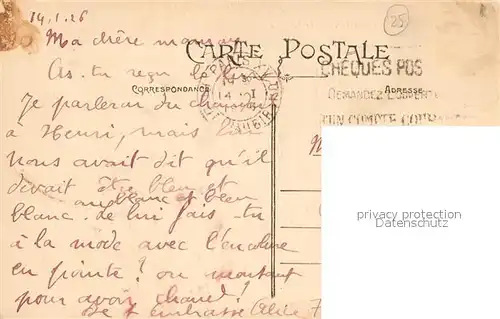 14.1.26
25
Ma chère maman
CARTE POSTALE
As-tu reçu le
CHEQUES POS
CORRESPONDANCE
ADRESSE
DEMANDEZ L'OUVERTU
UN COMPTE COURANT
Je parlerai du
à Henri, mais lui
nous avait dit qu'il
devait être bleu et
au blanc et bleu
blanc. de lui fais-tu
à la mode avec l'encolure
en pointe? ou montant
pour avoir chaud!
Je t'embrasse Alice
privacy protection
Datenschutz